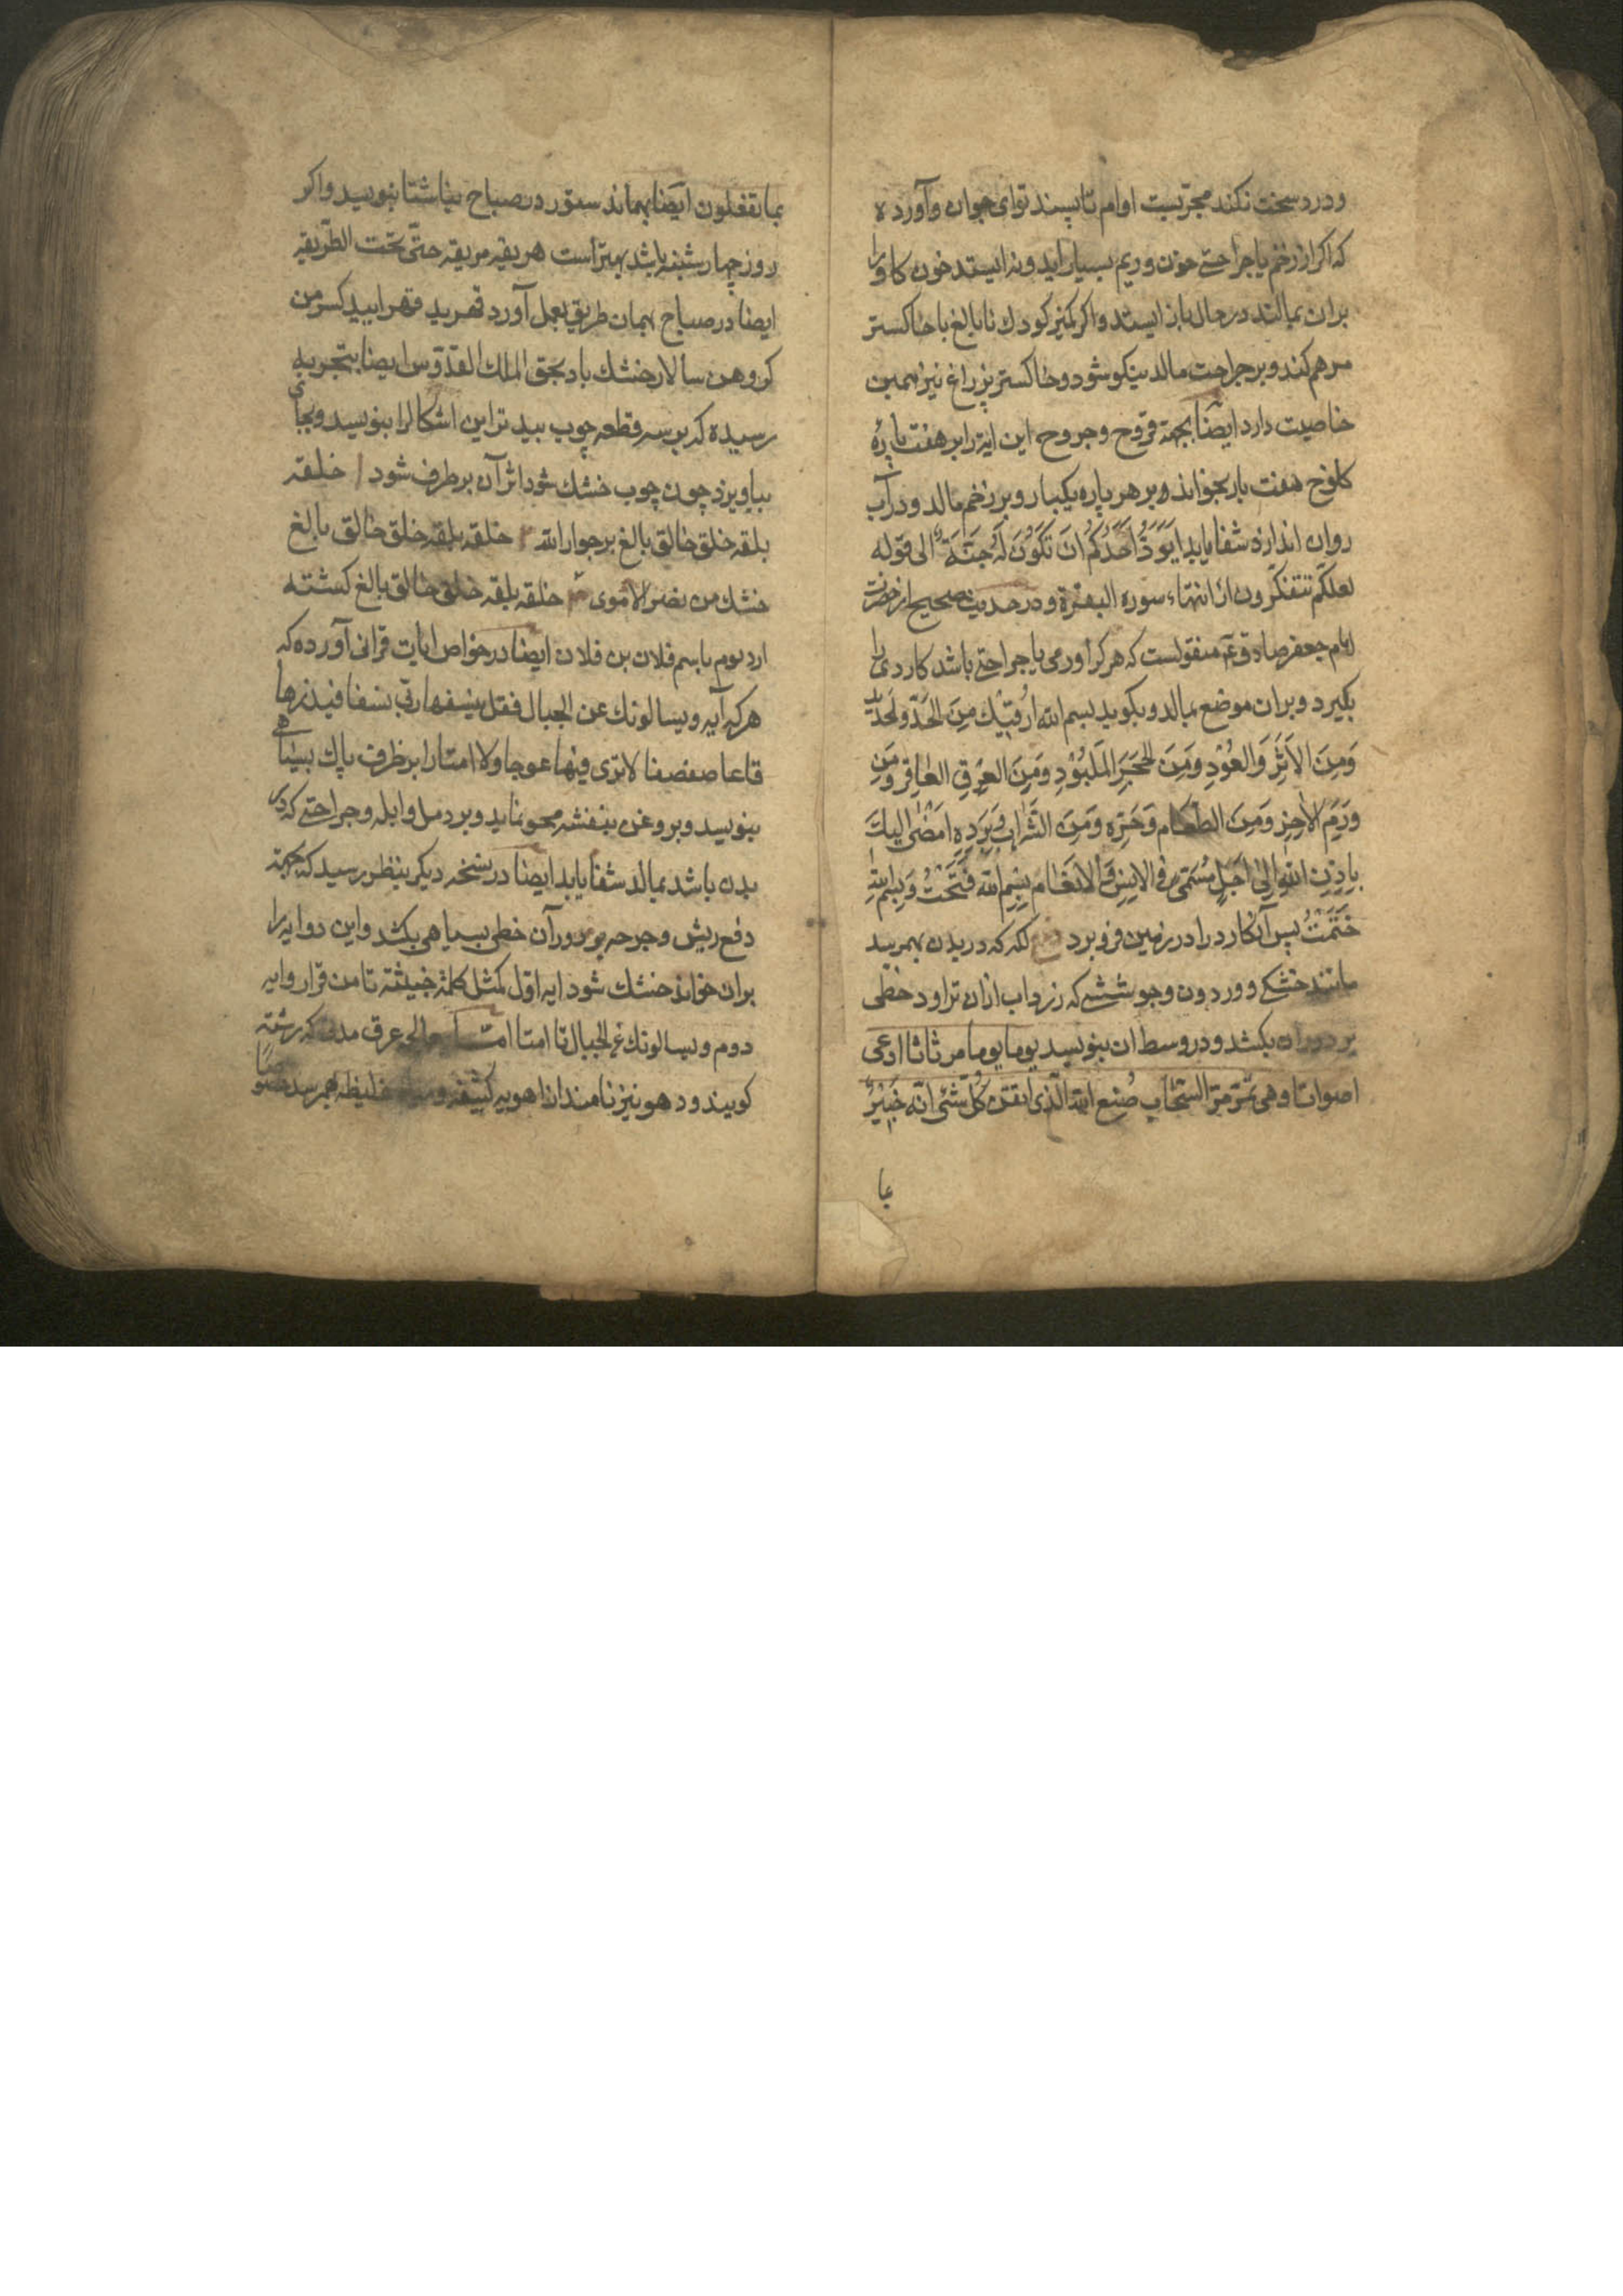 و درد سخت نکند مجرّبست اوام تا پسند توای جوان و آورده
که اکر از زخم یا جراحتی خون و ریم بسیار اید و نه ایستد خون کاو را
بران بمالند در حال باز ایستد و اکر کمیز کودك نابالغ با خاکستر
مرهم کند و بر جراحت مالد نیکو شود و خاکستر پر زاغ نیز همین
خاصیت دارد ایضا بجهة قروح و جروح این ایة را بر هفت پاره
کلوخ هفت بار بخواند و بر هر پاره یکبار و بر زخم مالد و در آب
روان اندازد شفا یابد اَیَوَدُّ اَحَدُکُم اَن تَکُونَ لَهُ جَنَّةٌ الی قوله
لعلکم تتفکرون از انتهاء سوره البقرة و در حدیث صحیح از حضرت
امام جعفر صادق عم منقولست که هر کرا ورمی یا جراحتی باشد کاردی را
بکیرد و بران موضع بمالد و بکوید بسم الله اَرقیك مِنَ الحَدّ و الحَدید
وَمِنَ الاَثَرِ وَالعُودِ وَمِنَ الحَجَرِ المَلبُودِ وَمِنَ العِرقِ العاقِر وَمِنَ
وَرَمِ الاخِر وَمِنَ الطعام وَحَرّه وَمِنَ الشَّرابِ وَبَردِهِ اَمضی الیكَ
باِذنِ اللّٰهِ اِلی اَجَلٍ مُسَمّی فی الاِنسِ وَالاَنعام بِسمِ الله فَتَحتُ وَ بِسمِ اللهِ
خَتَمتُ پس آن کارد را در زمین فرو برد لکه که در بدن بهمرسد
مانند خشکی و وردون و جوششی که زرداب ازان تراود خطی
بر دوران بکشد و در وسط ان بنویسد یوما یوما مر ثاثا ادعی
اصواتا و هی تمرّ مرّ السّحاب صُنع الله الّذی اتقن کُلّ شَئ انّه خَبیرٌ
بما
بما تفعلون ایضا بهمانذ ستور در صباح بناشتا بنویسد و اکر
روز چهارشنبه باشد بهتر است هریقه مریقه حتّی تحت الطّریقه
ایضا در صباح بهمان طریق بعمل آورد قهرید قهرابید کسر من
کروهن سالار خشك باد بحق الملك القدّوس ایضا بتجربه
رسیده که بر سه قطعه چوب بید تر این اشکال را بنویسد و بجای
بیاویزد چون چوب خشك شود اثر آن برطرف شود خلقه
بلقه خلق خالق بالغ بر جوار الله خلقه بلقه خلق خالق بالغ
خشك من نضر الاموی خلقه بلقه خلق خالق بالغ کشته
ارد بوم باسم فلان بن فلان ایضا در خواص ایات قرانی آورده که
هر که آیه و یسالونك عن الجبال فقل ینسفها ربّی نسفا فیذرها
قاعا صفصفا لا تری فیها عوجا ولا امتا را بر ظرف پاك بسیاهی
بنویسد و بروغن بنفشه محو نماید و بر دمل و ابله و جراحتی که در
بدن باشد بمالد شفا یابد ایضا در نسخه دیکر بنظر رسید که جهة
دفع ریش و جرحه بر دور آن خطی بسیاهی بکشد و این دو ایه را
بران خواند خشك شود ایه اوّل کمثل کلمة خبیثة تا من قرار و ایه
دوم و یسالونك عن الجبال تا امتا عرق مدنی که رشته
کویند و در هو نیز نامند از اهویه کثیفه و غلیظه بهمرسد خصوصا